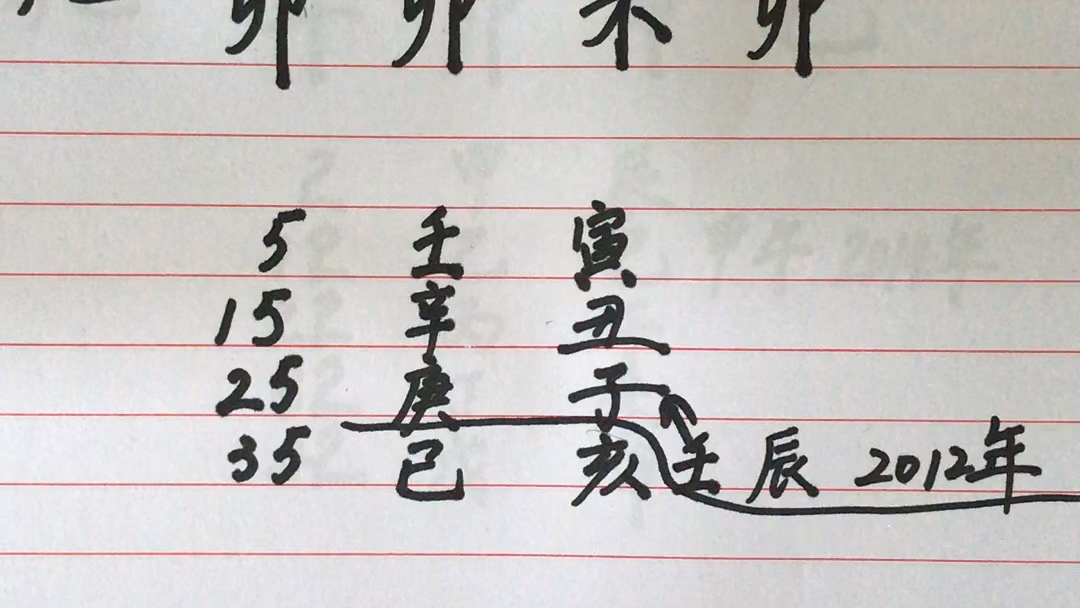 卯 卯 未 卯
5 壬 寅
15 辛 丑
25 庚 子
35 己 亥 壬 辰 2012年